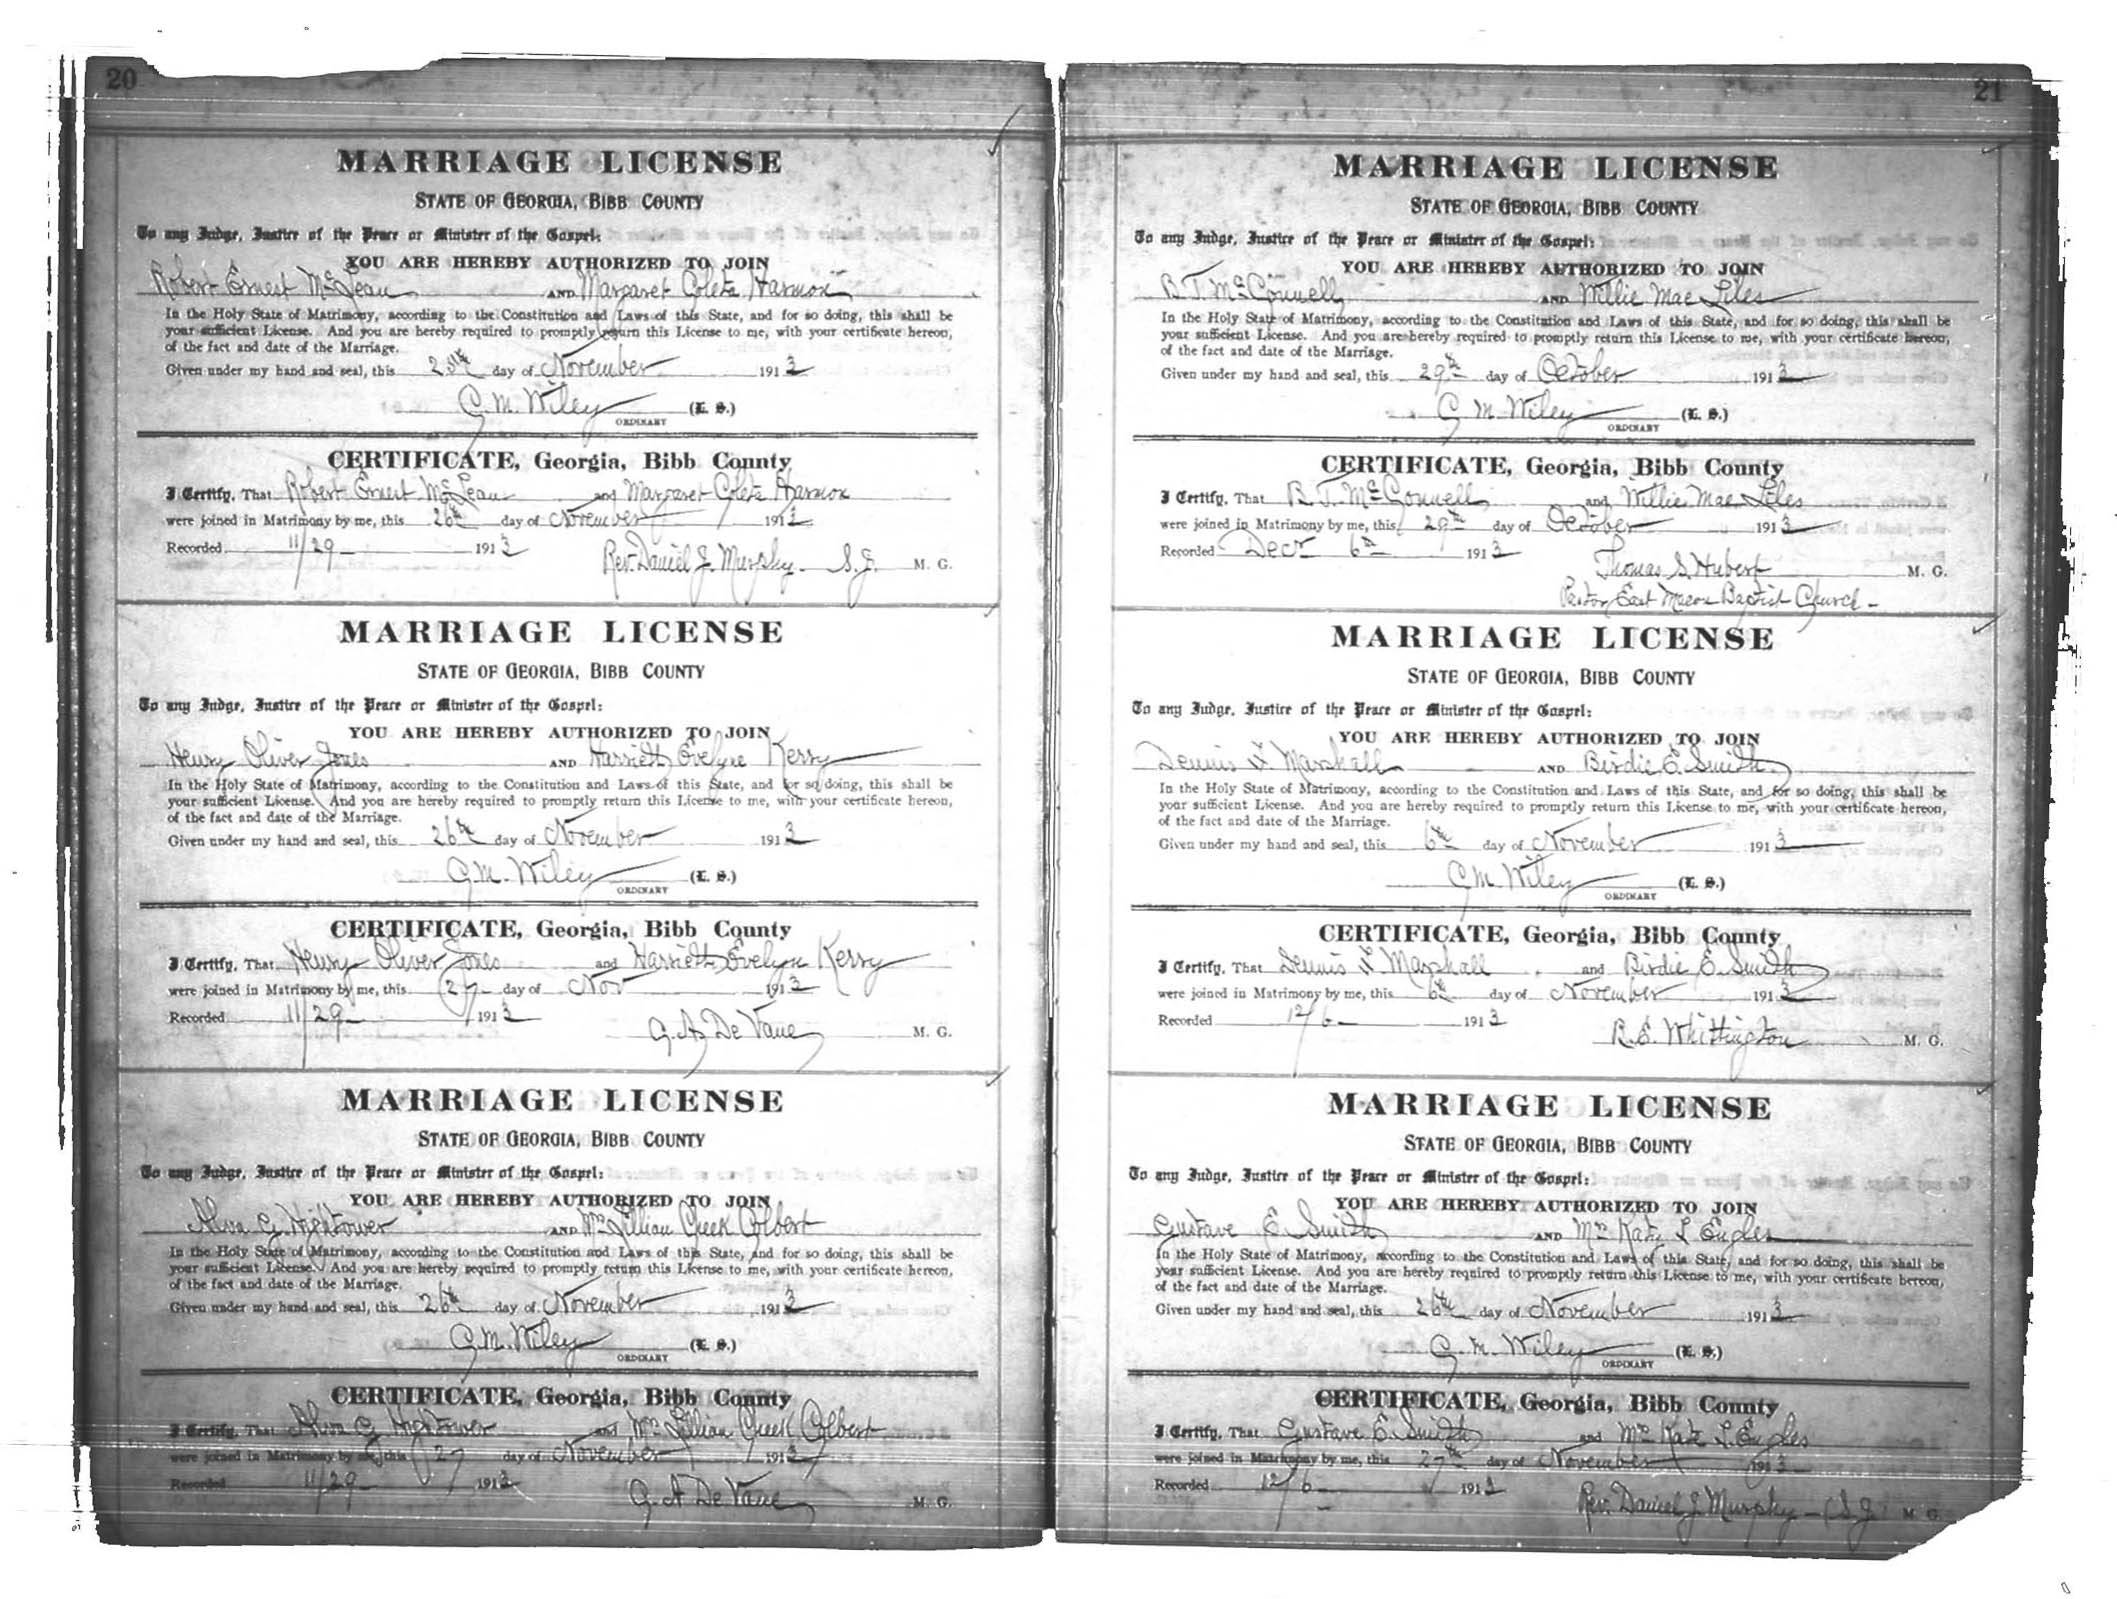 20
MARRIAGE LICENSE
STATE OF GEORGIA, BIBB COUNTY
To any Judge, Justice of the Peace or Minister of the Gospel:
YOU ARE HEREBY AUTHORIZED TO JOIN
Robert Ernest McLean AND Margaret Coleta Harmon
In the Holy State of Matrimony, according to the Constitution and Laws of this State, and for so doing, this shall be
your sufficient License. And you are hereby required to promptly return this License to me, with your certificate hereon,
of the fact and date of the Marriage.
Given under my hand and seal, this 25th day of November 1913
G. M. Wiley (L. S.)
ORDINARY
CERTIFICATE, Georgia, Bibb County
I Certify, That Robert Ernest McLean and Margaret Coleta Harmon
were joined in Matrimony by me, this 26th day of November 1913
Recorded 11/29 1913 Rev. Daniel J. Murphy. S.J. M. G.
MARRIAGE LICENSE
STATE OF GEORGIA, BIBB COUNTY
To any Judge, Justice of the Peace or Minister of the Gospel:
YOU ARE HEREBY AUTHORIZED TO JOIN
Henry Oliver Jones AND Harriett Evelyne Kerry
In the Holy State of Matrimony, according to the Constitution and Laws of this State, and for so doing, this shall be
your sufficient License. And you are hereby required to promptly return this License to me, with your certificate hereon,
of the fact and date of the Marriage.
Given under my hand and seal, this 26th day of November 1913
G. M. Wiley (L. S.)
ORDINARY
CERTIFICATE, Georgia, Bibb County
I Certify, That Henry Oliver Jones and Harriett Evelyn Kerry
were joined in Matrimony by me, this 27 day of Nov 1913
Recorded 11/29 1913 G. A. DeVane M. G.
MARRIAGE LICENSE
STATE OF GEORGIA, BIBB COUNTY
To any Judge, Justice of the Peace or Minister of the Gospel:
YOU ARE HEREBY AUTHORIZED TO JOIN
Alva C. Hightower AND Mrs Lillian Cheek Colbert
In the Holy State of Matrimony, according to the Constitution and Laws of this State, and for so doing, this shall be
your sufficient License. And you are hereby required to promptly return this License to me, with your certificate hereon,
of the fact and date of the Marriage.
Given under my hand and seal, this 26th day of November 1913
G. M. Wiley (L. S.)
ORDINARY
CERTIFICATE, Georgia, Bibb County
I Certify, That Alva C. Hightower and Mrs Lillian Cheek Colbert
were joined in Matrimony by me, this 27 day of November 1913
Recorded 11/29 1913 G. A DeVane M. G.
21
MARRIAGE LICENSE
STATE OF GEORGIA, BIBB COUNTY
To any Judge, Justice of the Peace or Minister of the Gospel:
YOU ARE HEREBY AUTHORIZED TO JOIN
B. T. McConnell AND Willie Mae Liles
In the Holy State of Matrimony, according to the Constitution and Laws of this State, and for so doing, this shall be
your sufficient License. And you are hereby required to promptly return this License to me, with your certificate hereon,
of the fact and date of the Marriage.
Given under my hand and seal, this 29th day of October 1913
G. M. Wiley (L. S.)
ORDINARY
CERTIFICATE, Georgia, Bibb County
I Certify, That B. T. McConnell and Willie Mae Liles
were joined in Matrimony by me, this 29th day of October 1913
Recorded Decr 6th 1913 Thomas S. Hubert M. G.
Pastor East Macon Baptist Church
MARRIAGE LICENSE
STATE OF GEORGIA, BIBB COUNTY
To any Judge, Justice of the Peace or Minister of the Gospel:
YOU ARE HEREBY AUTHORIZED TO JOIN
Dennis F. Marshall AND Birdie E. Smith
In the Holy State of Matrimony, according to the Constitution and Laws of this State, and for so doing, this shall be
your sufficient License. And you are hereby required to promptly return this License to me, with your certificate hereon,
of the fact and date of the Marriage.
Given under my hand and seal, this 6th day of November 1913
G. M. Wiley (L. S.)
ORDINARY
CERTIFICATE, Georgia, Bibb County
I Certify, That Dennis F. Marshall and Birdie E. Smith
were joined in Matrimony by me, this 6th day of November 1913
Recorded 12/6 1913 R. E. Whittington M. G.
MARRIAGE LICENSE
STATE OF GEORGIA, BIBB COUNTY
To any Judge, Justice of the Peace or Minister of the Gospel:
YOU ARE HEREBY AUTHORIZED TO JOIN
Gustave E. Smith AND Mrs Kate L Engles
In the Holy State of Matrimony, according to the Constitution and Laws of this State, and for so doing, this shall be
your sufficient License. And you are hereby required to promptly return this License to me, with your certificate hereon,
of the fact and date of the Marriage.
Given under my hand and seal, this 26th day of November 1913
G. M. Wiley (L. S.)
ORDINARY
CERTIFICATE, Georgia, Bibb County
I Certify, That Gustave E. Smith and Mrs Kate L. Engles
were joined in Matrimony by me, this 27th day of November 1913
Recorded 12/6 1913 Rev. Daniel J Murphy - (S. J) M. G.